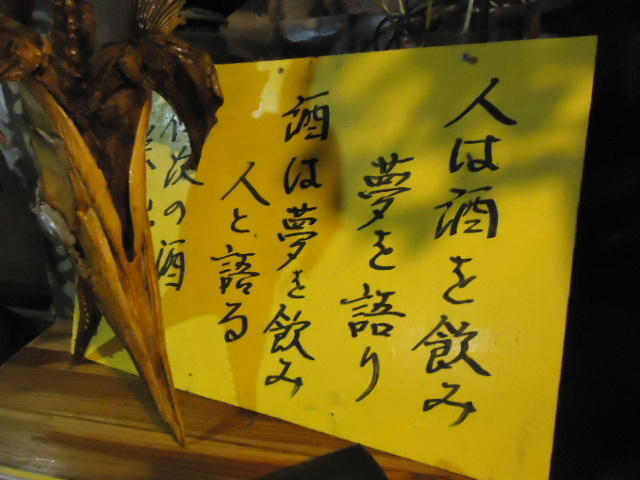 人は酒を飲み
夢を語り
酒は夢を飲み
人と語る
次の酒